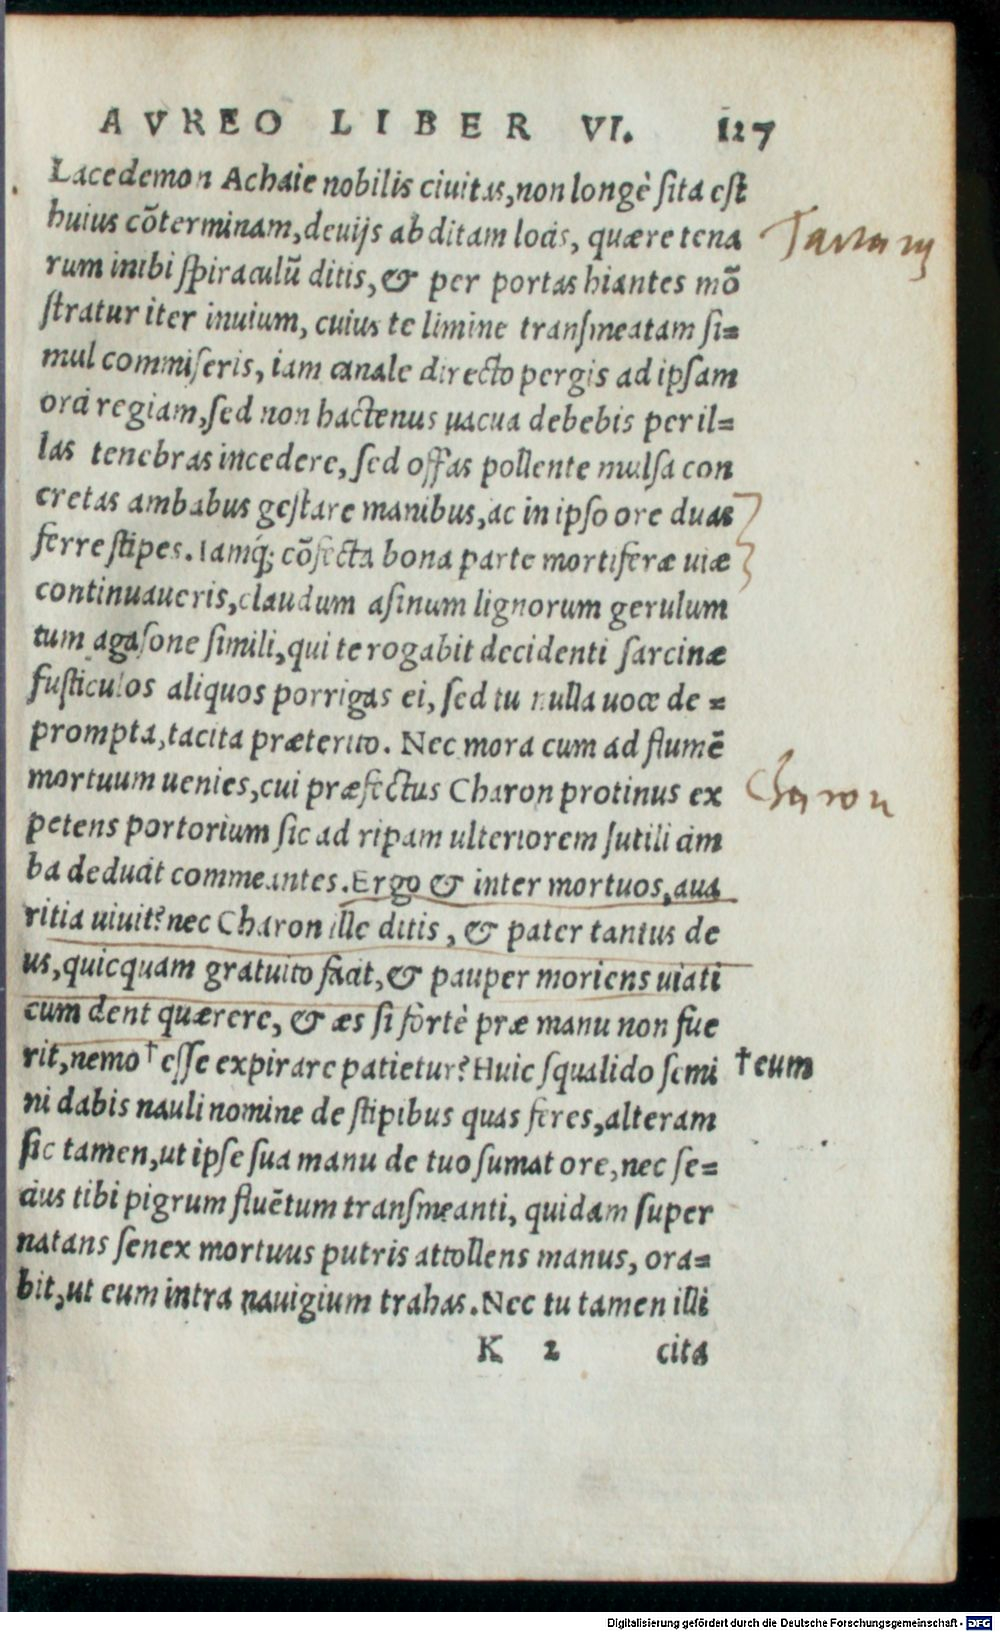 AVREO LIBER VI. 127
Lacedemon Achaie nobilis ciuitas, non longè sita est
huius cõterminam, deuijs abditam locis, quære tena
rum inibi spiraculũ ditis, & per portas hiantes mõ
stratur iter inuium, cuius te limine transmeatam si=
mul commiseris, iam canale directo pergis ad ipsam
orci regiam, sed non hactenus uacua debebis per il=
las tenebras incedere, sed offas pollente mulsa con
cretas ambabus gestare manibus, ac in ipso ore duas
ferre stipes. Iamq́; cõfecta bona parte mortiferæ uiæ
continuaueris, claudum asinum lignorum gerulum
tum agasone simili, qui te rogabit decidenti sarcinæ
fusticulos aliquos porrigas ei, sed tu nulla uoce de =
prompta, tacita præterito. Nec mora cum ad flumẽ
mortuum uenies, cui præfectus Charon protinus ex
petens portorium sic ad ripam ulteriorem sutili cim
ba deducit commeantes. Ergo & inter mortuos, aua
ritia uiuit? nec Charon ille ditis, & pater tantus de
us, quicquam gratuito facit, & pauper moriens uiati
cum dent quærere, & æs si fortè præ manu non fue
rit, nemo † esse expirare patietur? Huic squalido semi
ni dabis nauli nomine de stipibus quas feres, alteram
sic tamen, ut ipse sua manu de tuo sumat ore, nec se=
cius tibi pigrum fluẽtum transmeanti, quidam super
natans senex mortuus putris attollens manus, ora=
bit, ut eum intra nauigium trahas. Nec tu tamen illi
K 2 cita
Charon
† eum
Digitalisierung gefördert durch die Deutsche Forschungsgemeinschaft - DFG